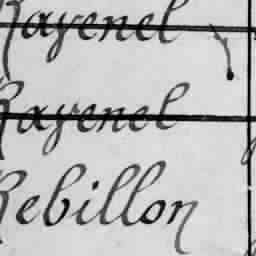 Rayenel
Rayenel
Rebillon